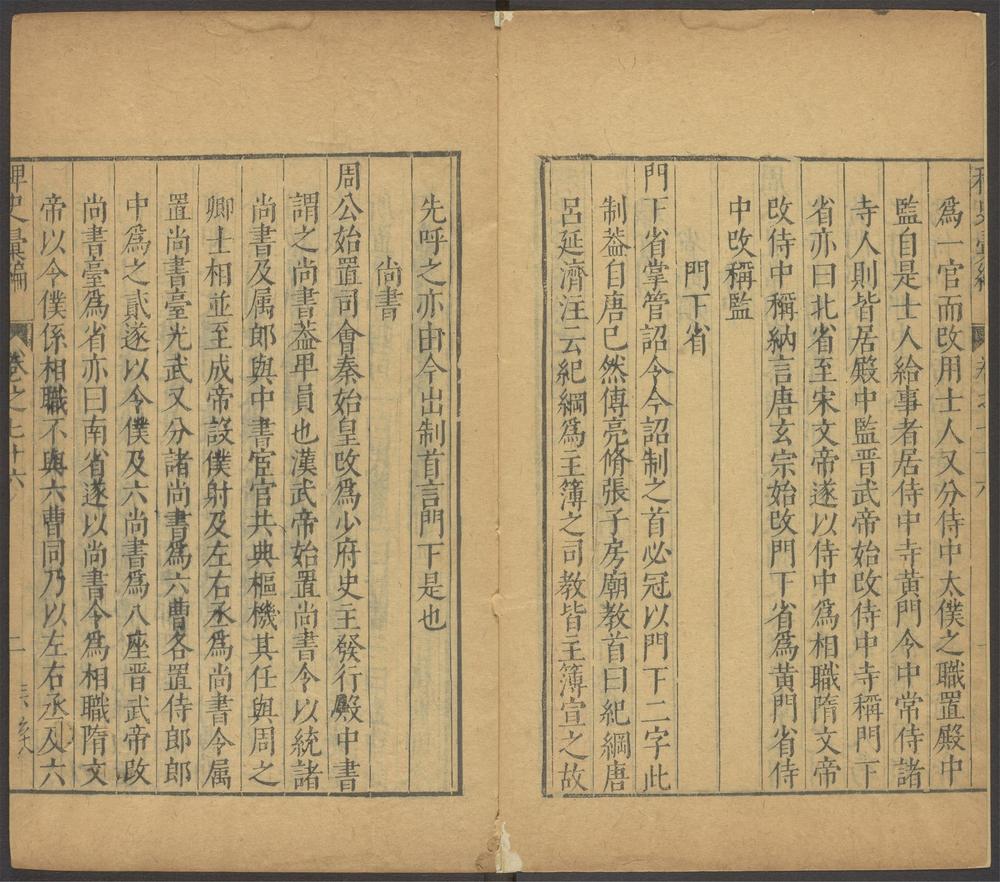 爲一官而改用士人又分侍中太僕之職置殿中
監自是士人給事者居侍中寺黃門令中常侍諸
寺人則皆居殿中監晉武帝始改侍中寺稱門下
省亦曰北省至宋文帝遂以侍中爲相職隋文帝
改侍中稱納言唐玄宗始改門下省爲黃門省侍
中改稱監
門下省
門下省掌管詔令今詔制之首必冠以門下二字此
制葢自唐已然傅亮脩張子房廟教首曰紀綱唐
呂延濟注云紀綱爲主簿之司教皆主簿宣之故
先呼之亦由今出制首言門下是也
尙書
周公始置司會秦始皇改爲少府史主發行殿中書
謂之尙書葢甲員也漢武帝始置尙書令以統諸
尙書及属郎與中書宦官共典樞機其任與周之
卿士相並至成帝設僕射及左右丞爲尙書令属
置尙書臺光武又分諸尙書爲六曹各置侍郎郎
中爲之貳遂以令僕及六尙書爲八座晉武帝改
尙書臺爲省亦曰南省遂以尙書令爲相職隋文
帝以令僕係相職不與六曹同乃以左右丞及六
稗史彙編 卷之七十六 二